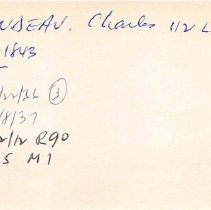 NDEAU. Charles 1/2 L
-1843
2/36 ③
/8/37
2/12 R90
5 M1